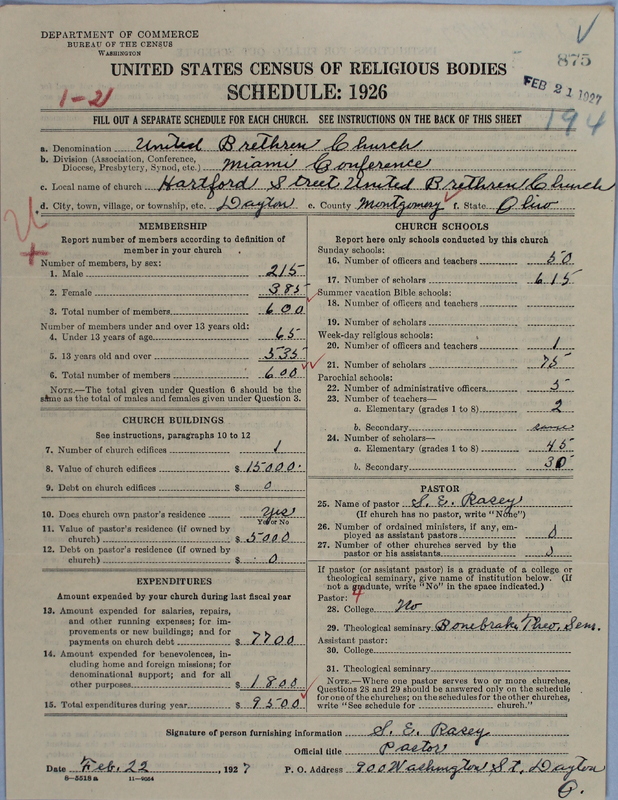 DEPARTMENT OF COMMERCE
BUREAU OF THE CENSUS
WASHINGTON
875
FEB 21 1927
194
1-21
UNITED STATES CENSUS OF RELIGIOUS BODIES
SCHEDULE: 1926
FILL OUT A SEPARATE SCHEDULE FOR EACH CHURCH. SEE INSTRUCTIONS ON THE BACK OF THIS SHEET
a. Denomination United Brethren Church
b. Division (Association, Conference, Diocese, Presbytery, Synod, etc.) Miami Conference
c. Local name of church Hartford Street United Brethren Church
d. City, town, village, or township, etc. Dayton e. County Montgomery f. State Ohio
MEMBERSHIP
Report number of members according to definition of
member in your church
Number of members, by sex:
1. Male 215
2. Female 385
3. Total number of members 600
Number of members under and over 13 years old:
4. Under 13 years of age 65
5. 13 years old and over 535
6. Total number of members 600
NOTE.—The total given under Question 6 should be the
same as the total of males and females given under Question 3.
CHURCH BUILDINGS
See instructions, paragraphs 10 to 12
7. Number of church edifices 1
8. Value of church edifices $ 15000.
9. Debt on church edifices $ 0
10. Does church own pastor's residence yes
Yes or No
11. Value of pastor's residence (if owned by
church) $ 5000
12. Debt on pastor's residence (if owned by
church) $ 0
EXPENDITURES
Amount expended by your church during last fiscal year
13. Amount expended for salaries, repairs,
and other running expenses; for im-
provements or new buildings; and for
payments on church debt $ 7700
14. Amount expended for benevolences, in-
cluding home and foreign missions; for
denominational support; and for all
other purposes $ 1800
15. Total expenditures during year $ 9500
CHURCH SCHOOLS
Report here only schools conducted by this church
Sunday schools:
16. Number of officers and teachers 50
17. Number of scholars 615
Summer vacation Bible schools:
18. Number of officers and teachers
19. Number of scholars
Week-day religious schools:
20. Number of officers and teachers 1
21. Number of scholars 75
Parochial schools:
22. Number of administrative officers 5
23. Number of teachers—
a. Elementary (grades 1 to 8) 2
b. Secondary same
24. Number of scholars—
a. Elementary (grades 1 to 8) 45
b. Secondary 30
PASTOR
25. Name of pastor S. E. Rasey
(If church has no pastor, write "None")
26. Number of ordained ministers, if any, em-
ployed as assistant pastors 0
27. Number of other churches served by the
pastor or his assistants
If pastor (or assistant pastor) is a graduate of a college or
theological seminary, give name of institution below. (If
not a graduate, write "No" in the space indicated.)
Pastor: 4
28. College No
29. Theological seminary Bonebrake Theo. Sem.
Assistant pastor:
30. College
31. Theological seminary
NOTE.—Where one pastor serves two or more churches,
Questions 28 and 29 should be answered only on the schedule
for one of the churches; on the schedules for the other churches,
write "See schedule for church."
Signature of person furnishing information S. E. Rasey
Official title Pastor
Date Feb. 22, 1927 P. O. Address 900 Washington St. Dayton
O.
8-5518 a 11-9554